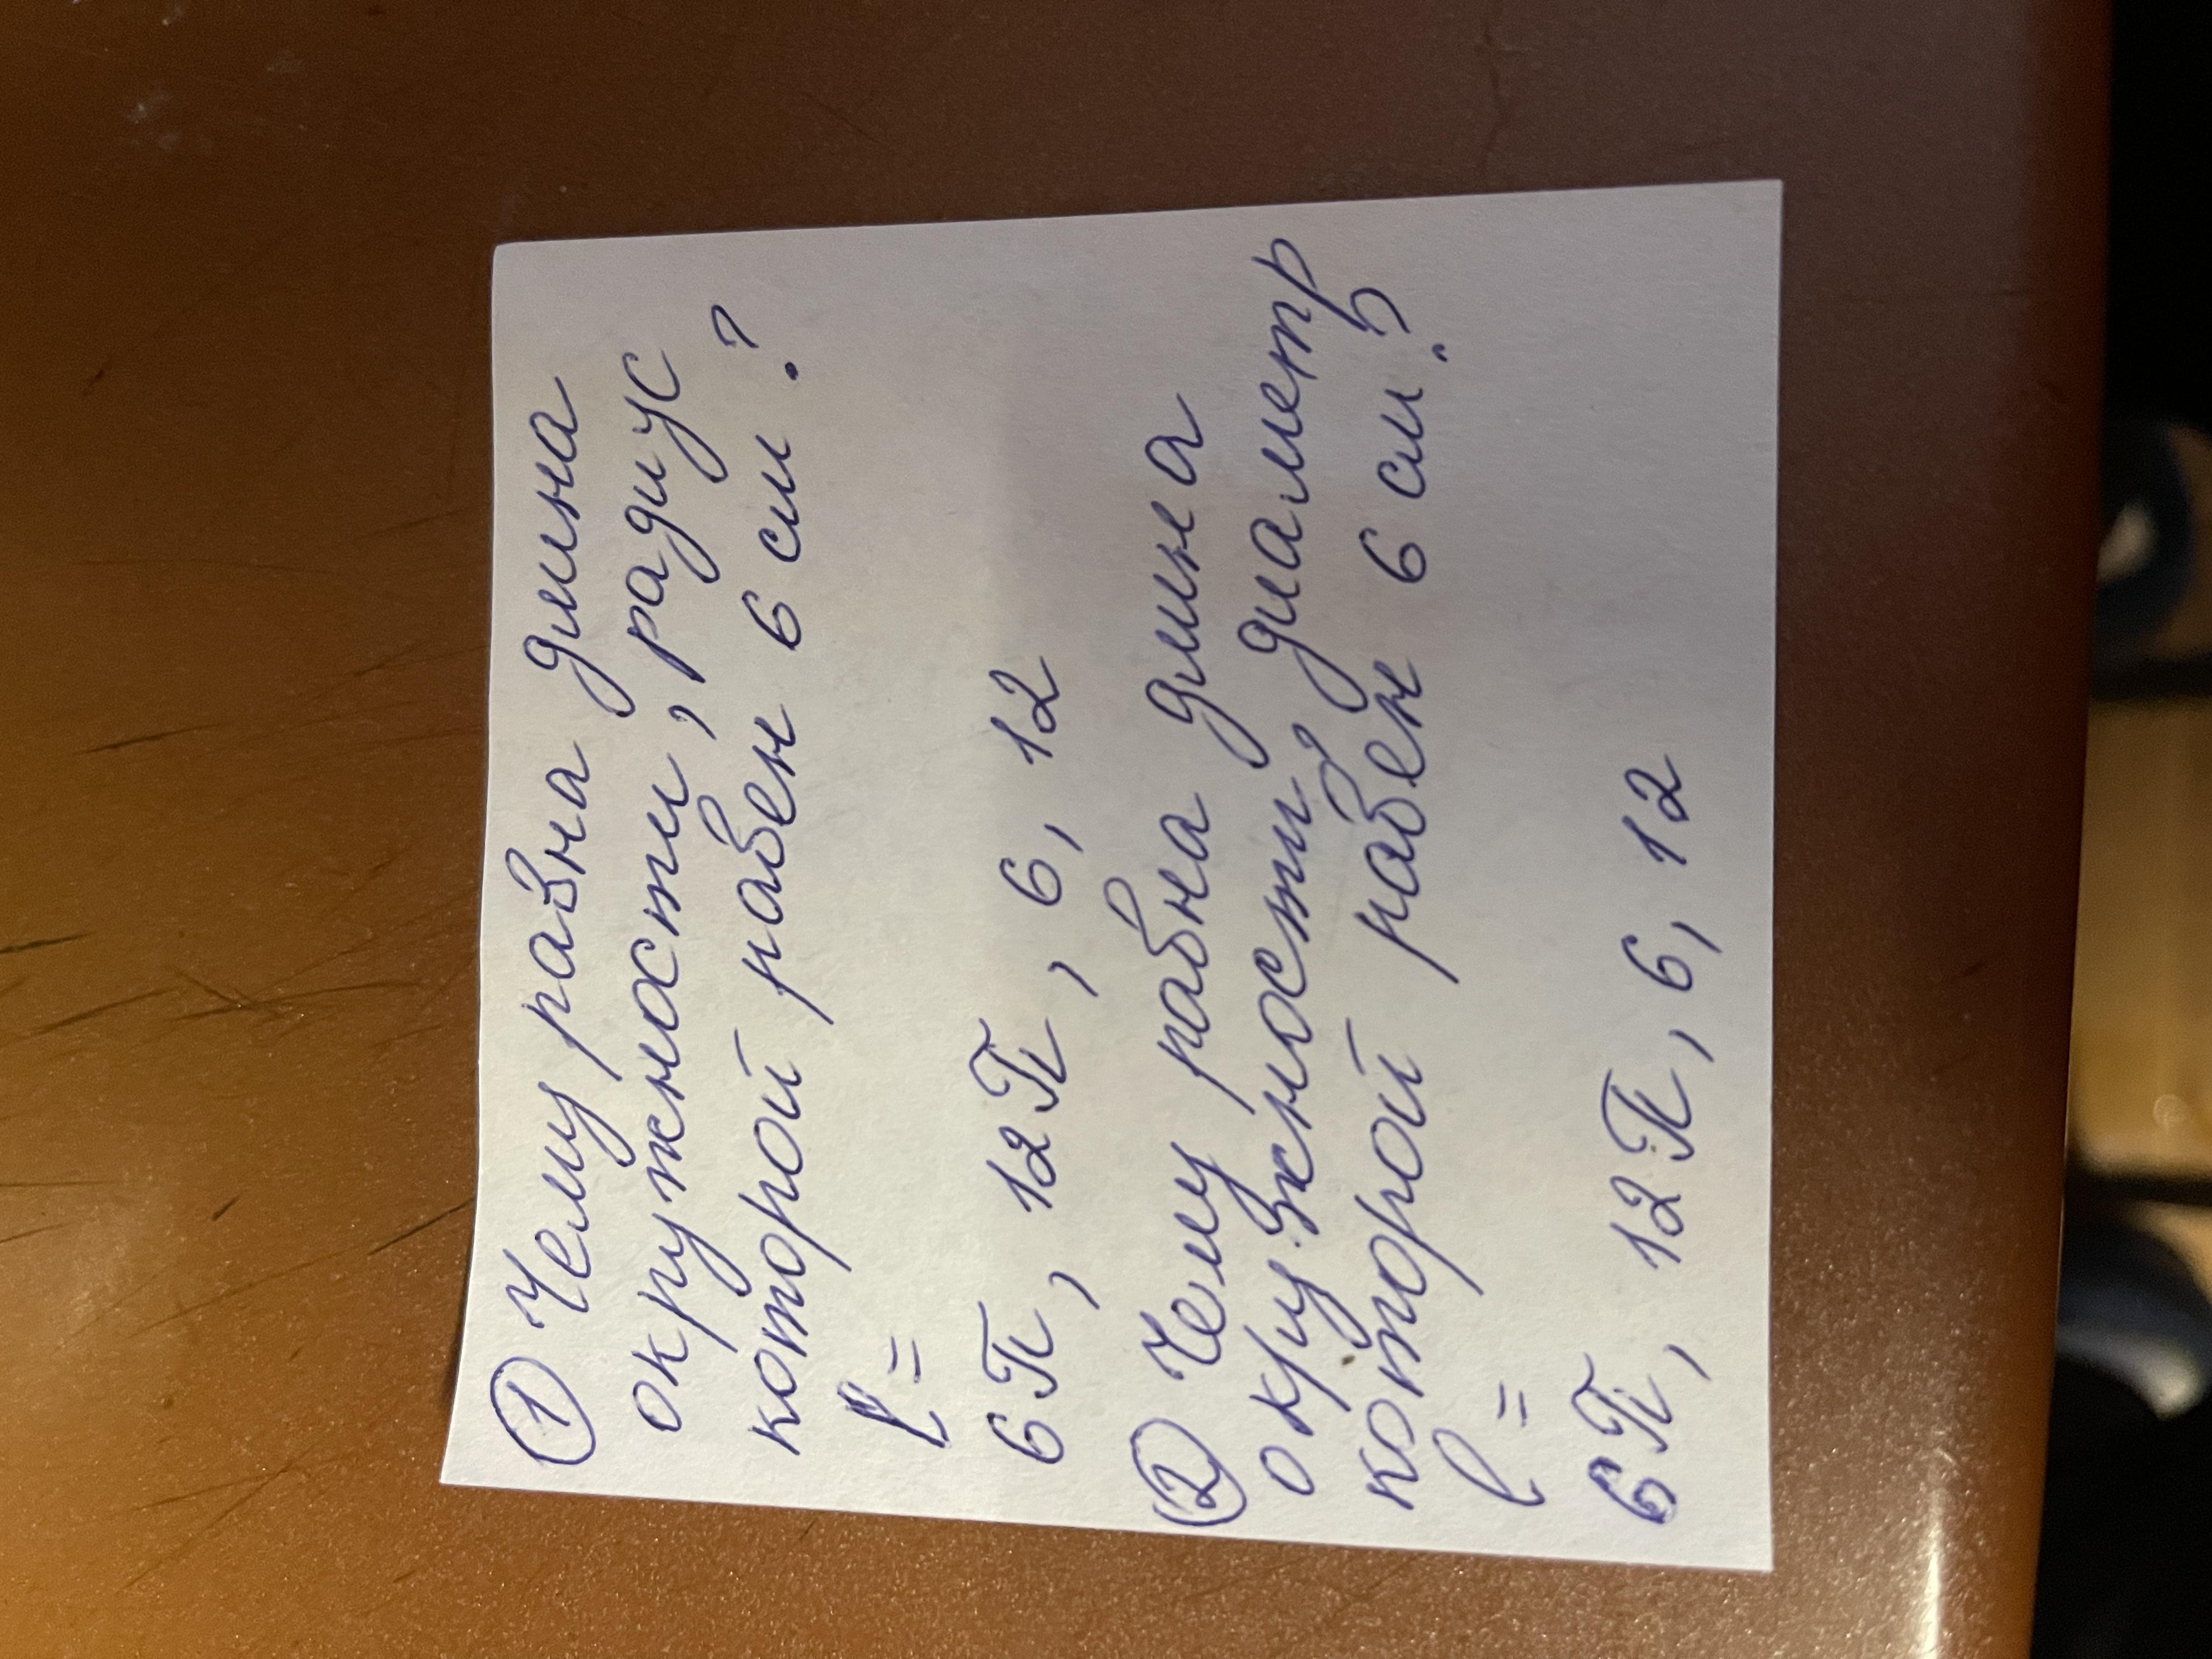 ① Чему равна длина
окружности, радиус
которой равен 6 см?
l =
6π, 12π, 6, 12
② Чему равна длина
окружности, диаметр
которой равен 6 см?
l =
6π, 12π, 6, 12